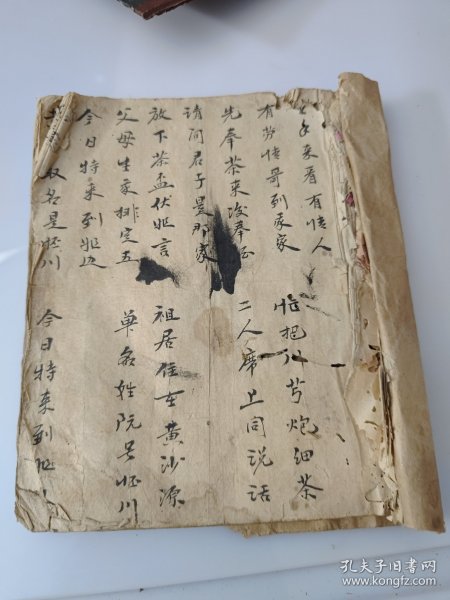 来看有情人
有劳情哥到家家 忙把川芎炮细茶
先奉茶来没奉
请问君子是那家 二人席上同说话
放下茶盃伏姐言 祖居住在黄沙源
父母生来排定五 单名姓阮号怪川
今日特来到姐边
取名是怪川 今日特来到姐
孔夫子旧书网
www.kongfz.com